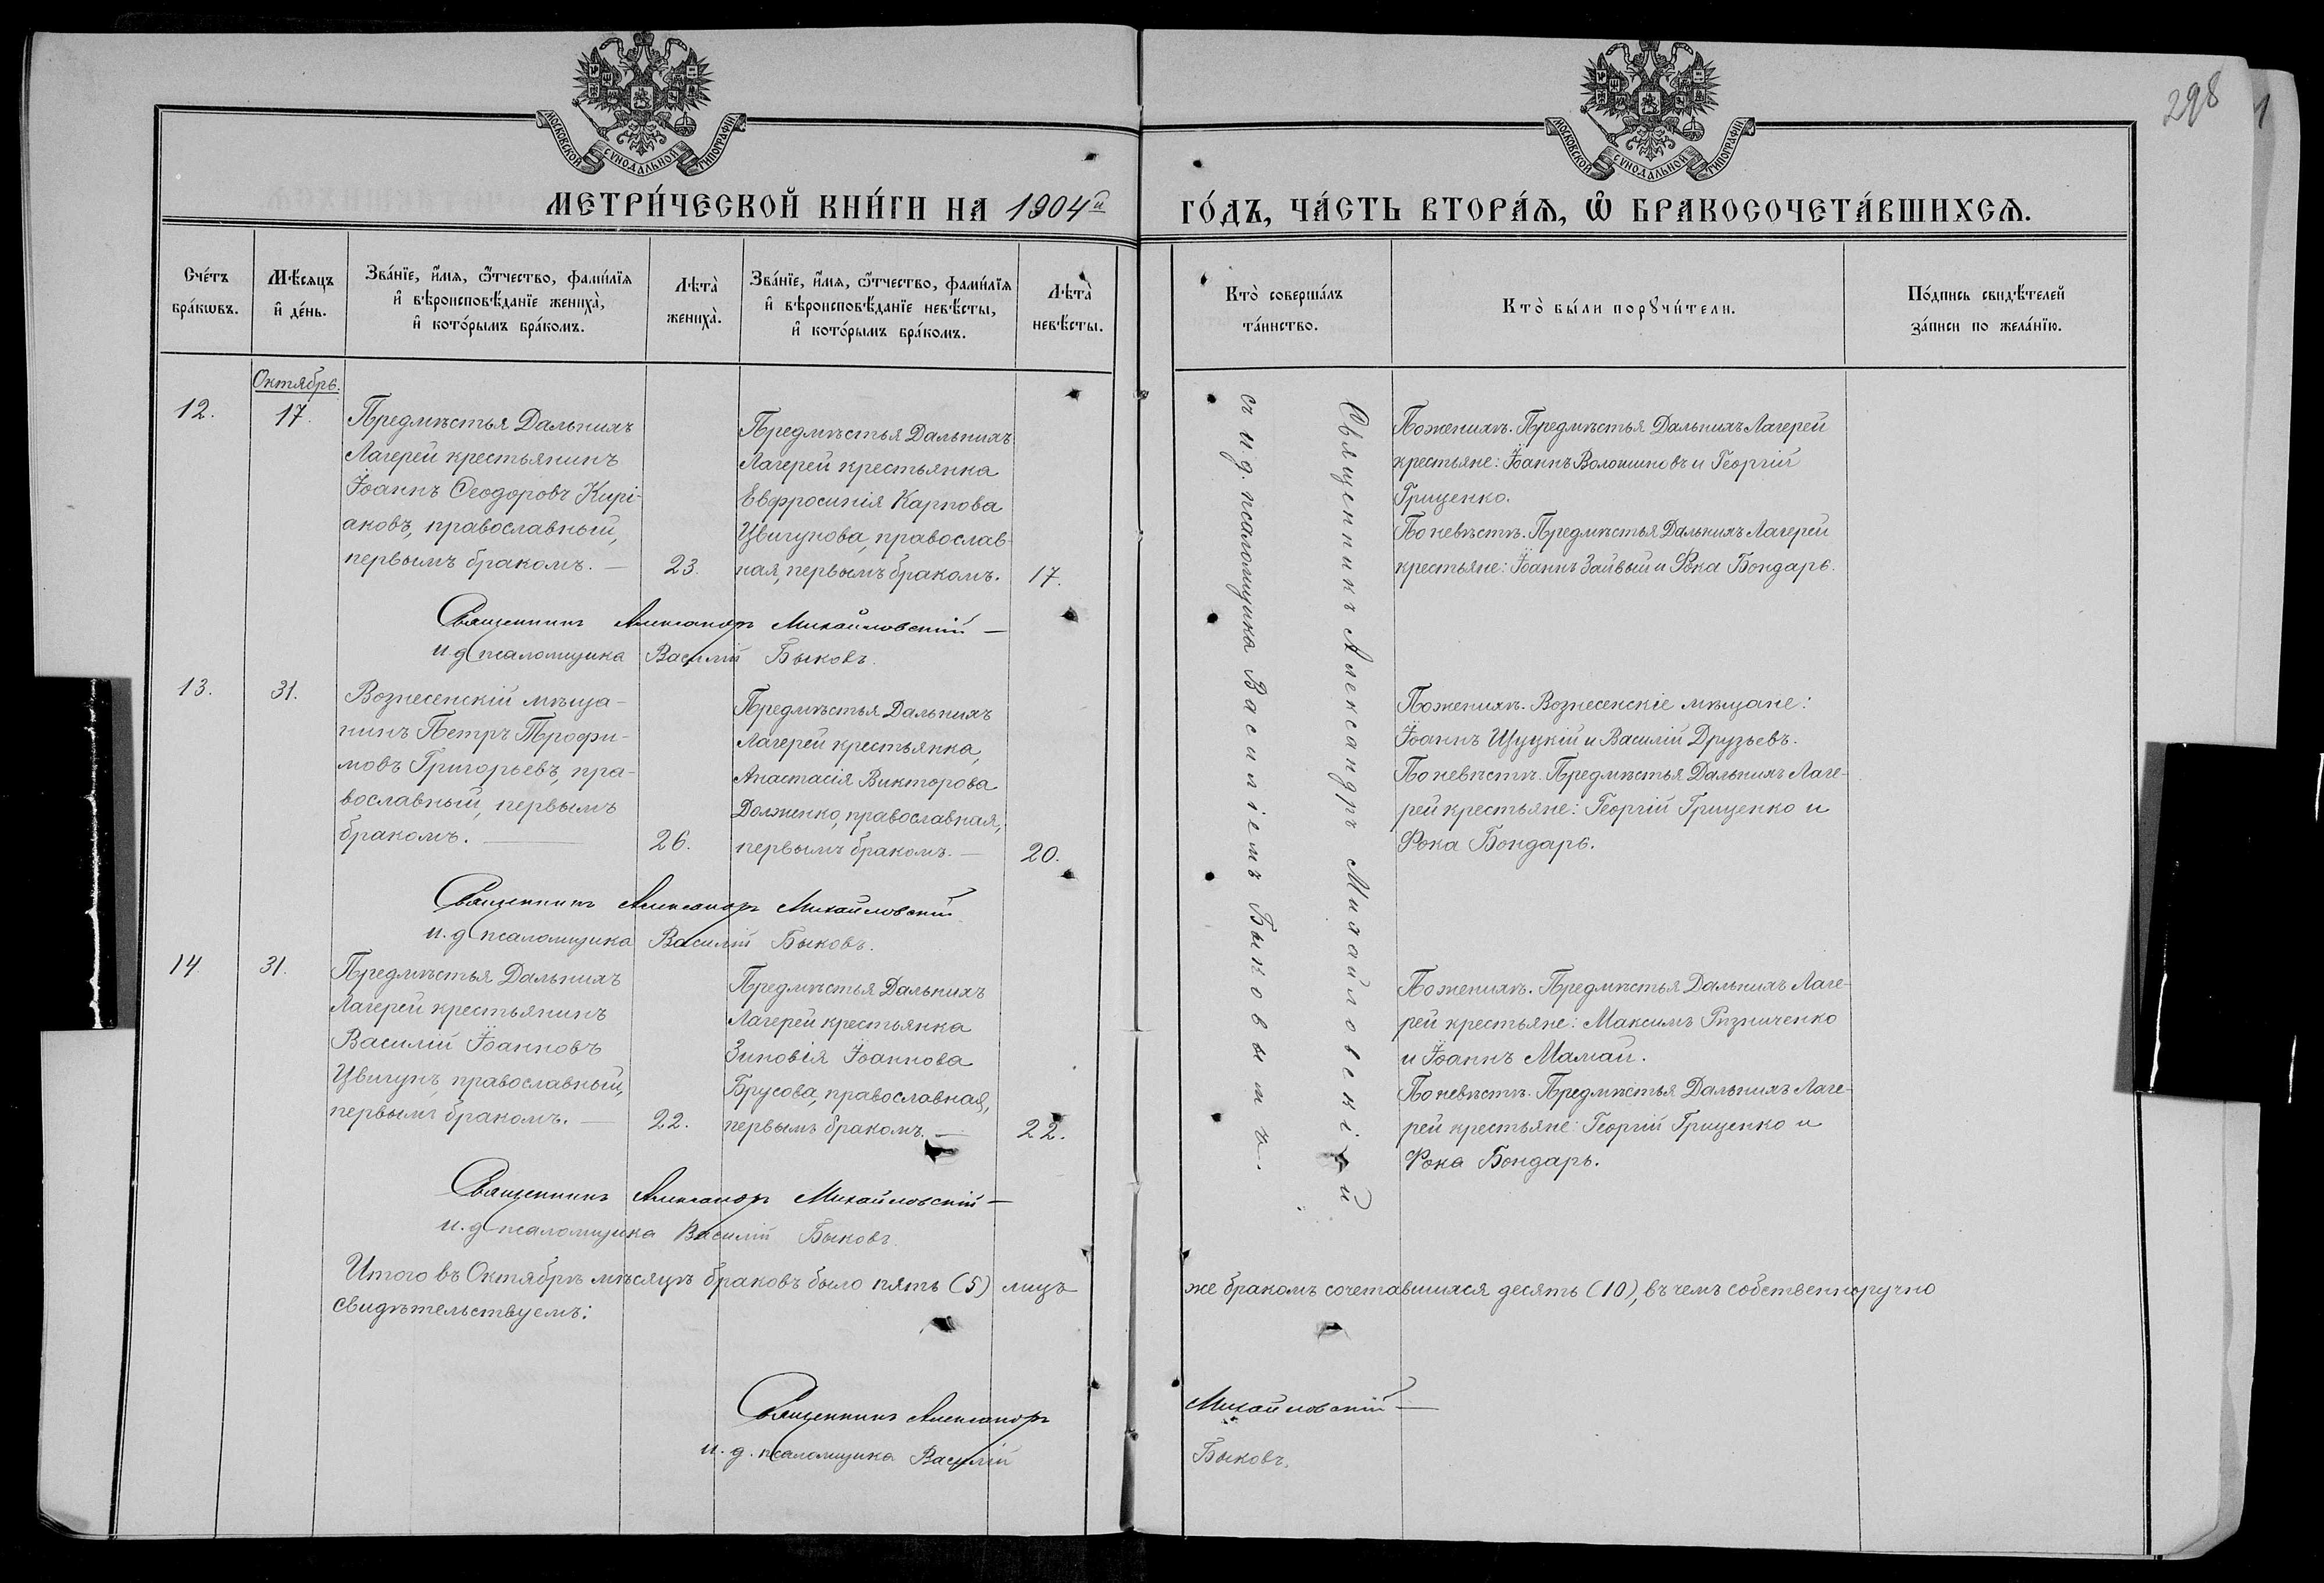 298
МОСКОВСКОЙ СѴНОДАЛЬНОЙ ТИПОГРАФІИ
МОСКОВСКОЙ СѴНОДАЛЬНОЙ ТИПОГРАФІИ
МЕТРИ́ЧЕСКОЙ КНИ́ГИ НА 1904й ГО́ДЪ, ЧА́СТЬ ВТОРА́Ѧ, Ѽ БРАКОСОЧЕТА́ВШИХСѦ.
Сче́тъ бра́кѡвъ.
Мѣ́сѧцъ и҆ де́нь.
Зва́нїе, и҆́мѧ, ѻ҆́тчество, фами́лїѧ
и҆ вѣроисповѣ́данїе жениха̀,
и҆ кото́рымъ бра́комъ.
Лѣта̀ жениха̀.
Зва́нїе, и҆́мѧ, ѻ҆́тчество, фами́лїѧ
и҆ вѣроисповѣ́данїе невѣ́сты,
и҆ кото́рымъ бра́комъ.
Лѣта̀ невѣ́сты.
Кто̀ соверша́лъ та́инство.
Кто̀ бы́ли порꙋчи́тели.
По́дпись свидѣ́телей за́писи по жела́нїю.
Октябрь.
12.
17.
Предмѣстья Дальнихъ
Лагерей крестьянинъ
Іоаннъ Ѳеодоровъ Кирі-
аковъ, православный,
первымъ бракомъ. —
23.
Предмѣстья Дальнихъ
Лагерей крестьянка
Евфросинія Карпова
Цвигунова, православ-
ная, первымъ бракомъ.
17.
Священникъ Александръ Михайловскій
съ и.д. псаломщика Василіемъ Быковымъ.
По женихѣ. Предмѣстья Дальнихъ Лагерей
крестьяне: Іоаннъ Волошиновъ и Георгій
Гриценко.
По невѣстѣ. Предмѣстья Дальнихъ Лагерей
крестьяне: Іоаннъ Зайвый и Фока Бондарь.
Священникъ Александръ Михайловскій —
и.д псаломщика Василій Быковъ.
13.
31.
Вознесенскій мѣща-
нинъ Петръ Трофи-
мовъ Григорьевъ, пра-
вославный, первымъ
бракомъ. —
26.
Предмѣстья Дальнихъ
Лагерей крестьянка,
Анастасія Викторова
Долженко, православная,
первымъ бракомъ. —
20.
По женихѣ. Вознесенскіе мѣщане:
Іоаннъ Щуцкій и Василій Друзьевъ.
По невѣстѣ. Предмѣстья Дальнихъ Лаге-
рей крестьяне: Георгій Гриценко и
Фока Бондарь.
Священникъ Александръ Михайловскій
и.д псаломщика Василій Быковъ.
14
31.
Предмѣстья Дальнихъ
Лагерей крестьянинъ
Василій Іоанновъ
Цвигунъ, православный,
первымъ бракомъ. —
22.
Предмѣстья Дальнихъ
Лагерей крестьянка
Зиновія Іоаннова
Брусова, православная,
первымъ бракомъ. —
22.
По женихѣ. Предмѣстья Дальнихъ Лаге-
рей крестьяне: Максимъ Рѣзниченко
и Іоаннъ Мамай.
По невѣстѣ. Предмѣстья Дальнихъ Лаге-
рей крестьяне: Георгій Гриценко и
Фока Бондарь.
Священникъ Александръ Михайловскій —
и.д псаломщика Василій Быковъ.
Итого въ Октябрѣ мѣсяцѣ браковъ было пять (5) лицъ же бракомъ сочетавшихся десять (10), въ чемъ собственноручно
свидѣтельствуемъ:
Священникъ Александръ Михайловскій —
и.д. псаломщика Василій Быковъ.